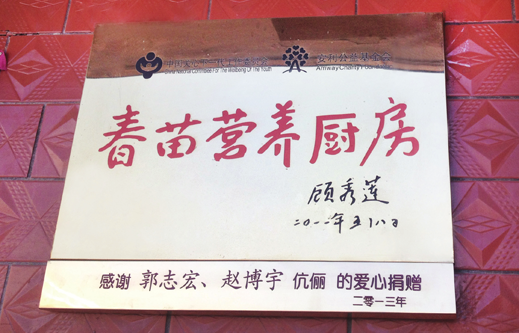 中国关心下一代工作委员会
China National Committee For The Wellbeing Of The Youth
安利公益基金会
Amway Charity Foundation
春苗营养厨房
顾秀莲
二〇一一年五月八日
感谢 郭志宏、赵博宇 伉俪 的爱心捐赠
二零一三年